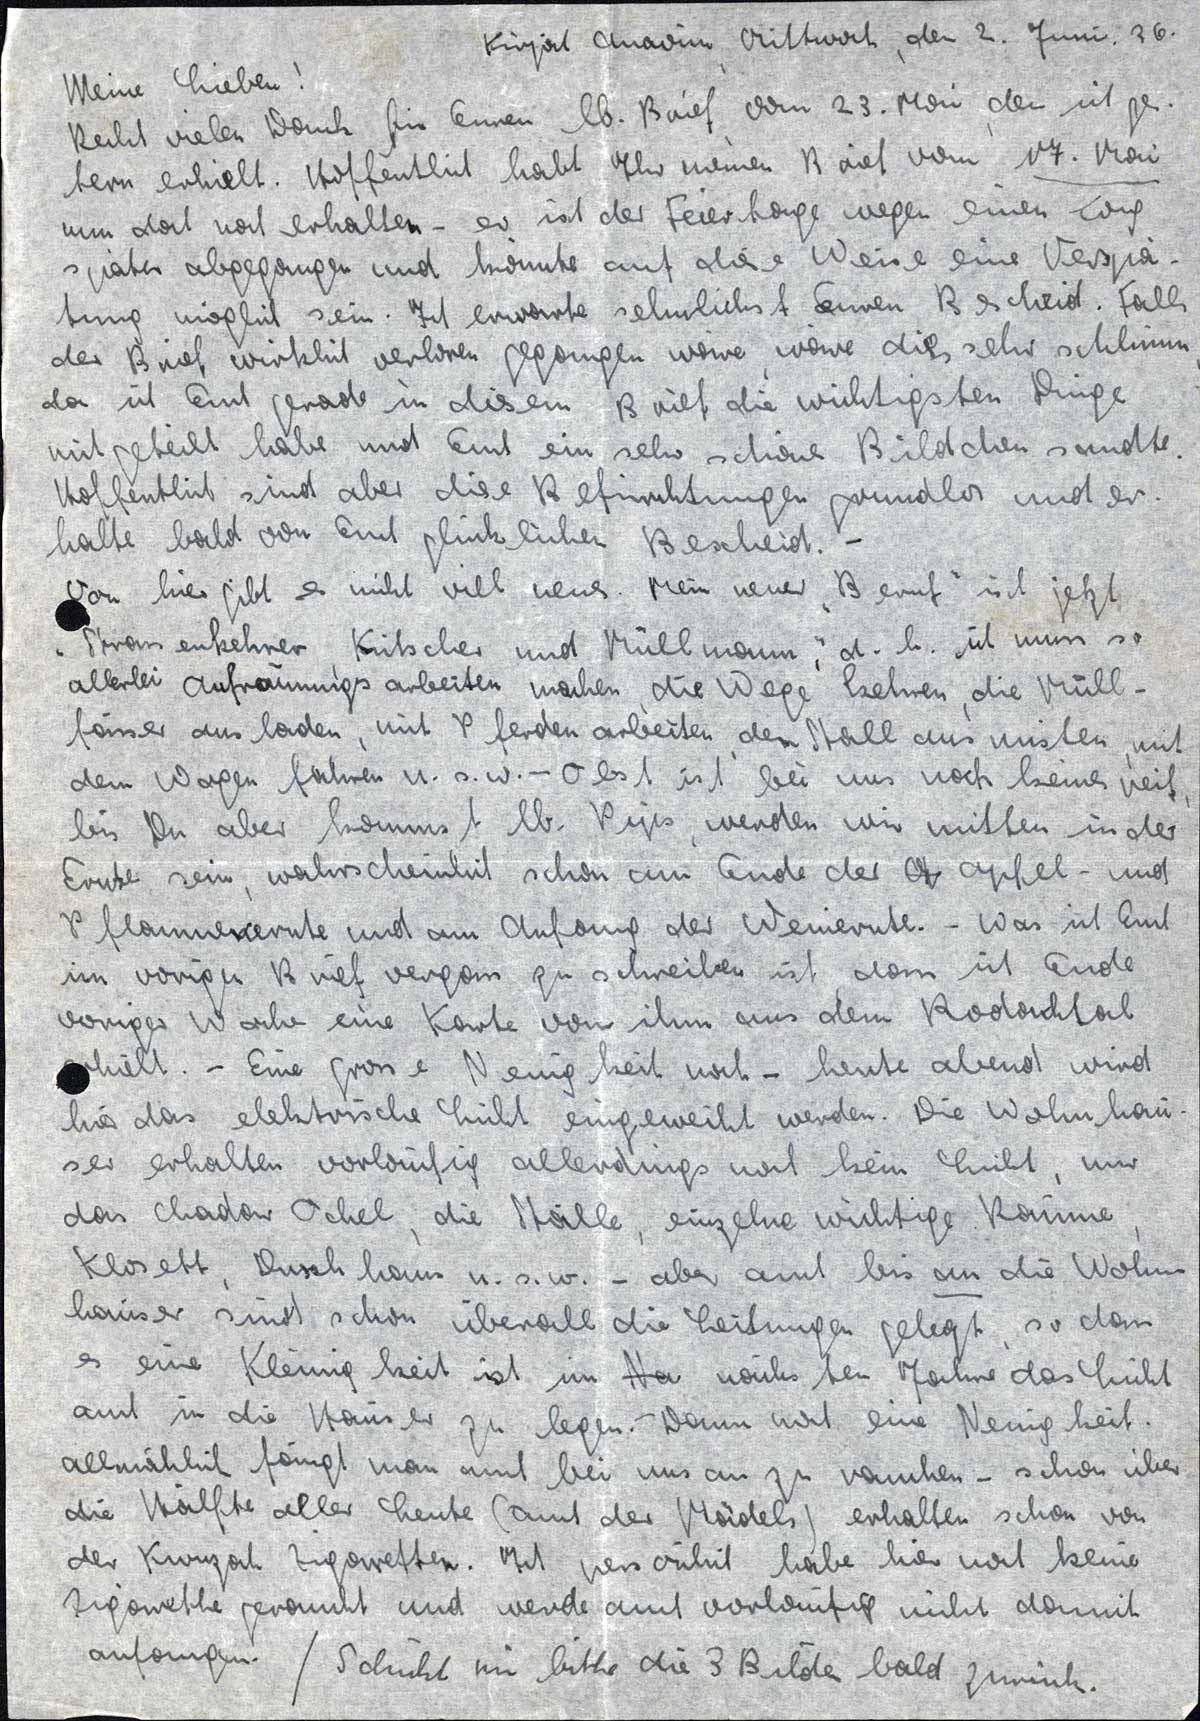 Kirjat Anavim, Mittwoch, den 2. Juni. 36.
Meine Lieben!
Recht vielen Dank für Euren lb. Brief vom 23. Mai, den ich ges-
tern erhielt. Hoffentlich habt Ihr meinen Brief vom 17. Mai
nun doch noch erhalten - er ist der Feiertage wegen einen Tag
später abgegangen und könnte auf diese Weise eine Verspä-
tung möglich sein. Ich erwarte sehnlichst Euren Bescheid. Falls
der Brief wirklich verloren gegangen wäre, wäre dies sehr schlimm,
da ich Euch gerade in diesem Brief die wichtigsten Dinge
mitgeteilt habe und Euch ein sehr schönes Bildchen sandte.
Hoffentlich sind aber diese Befürchtungen grundlos und er-
halte bald von Euch glücklichen Bescheid. -
Von hier gibt es nicht viel neues. Mein neuer "Beruf" ist jetzt
"Strassenkehrer Kutscher und Müllmann", d. h. ich muss so
allerlei Aufräumungsarbeiten machen, die Wege kehren, die Müll-
fässer ausladen, mit Pferden arbeiten, den Stall ausmisten, mit
dem Wagen fahren u. s. w. - Obst ist bei uns noch keines reif,
bis Du aber kommst lb. Pips, werden wir mitten in der
Ernte sein, wahrscheinlich schon am Ende der Apfel- und
Pflaumenernte und am Anfang der Weinernte. - Was ich Euch
im vorigen Brief vergass zu schreiben ist, dass ich Ende
voriger Woche eine Karte von ihm aus dem Rodachtal
erhielt. - Eine grosse Neuigkeit noch - heute abend wird
hier das elektrische Licht eingeweiht werden. Die Wohnhäu-
ser erhalten vorläufig allerdings noch kein Licht, nur
das Chadar Ochel, die Ställe, einzelne wichtige Räume,
Klosett, Duschhaus u. s. w. - aber auch bis an die Wohn
häuser sind schon überall die Leitungen gelegt, so dass
es eine Kleinigkeit ist im Na nächsten Jahre das Licht
auch in die Häuser zu legen. - Dann noch eine Neuigkeit.
allmählich fängt man auch bei uns an zu rauchen - schon über
die Hälfte aller Leute (auch der Mädels) erhalten schon von
der Kwuzah Zigaretten. Ich persönlich habe hier noch keine
Zigarette geraucht und werde auch vorläufig nicht damit
anfangen. / Schickt mir bitte die 3 Bilder bald zurück.